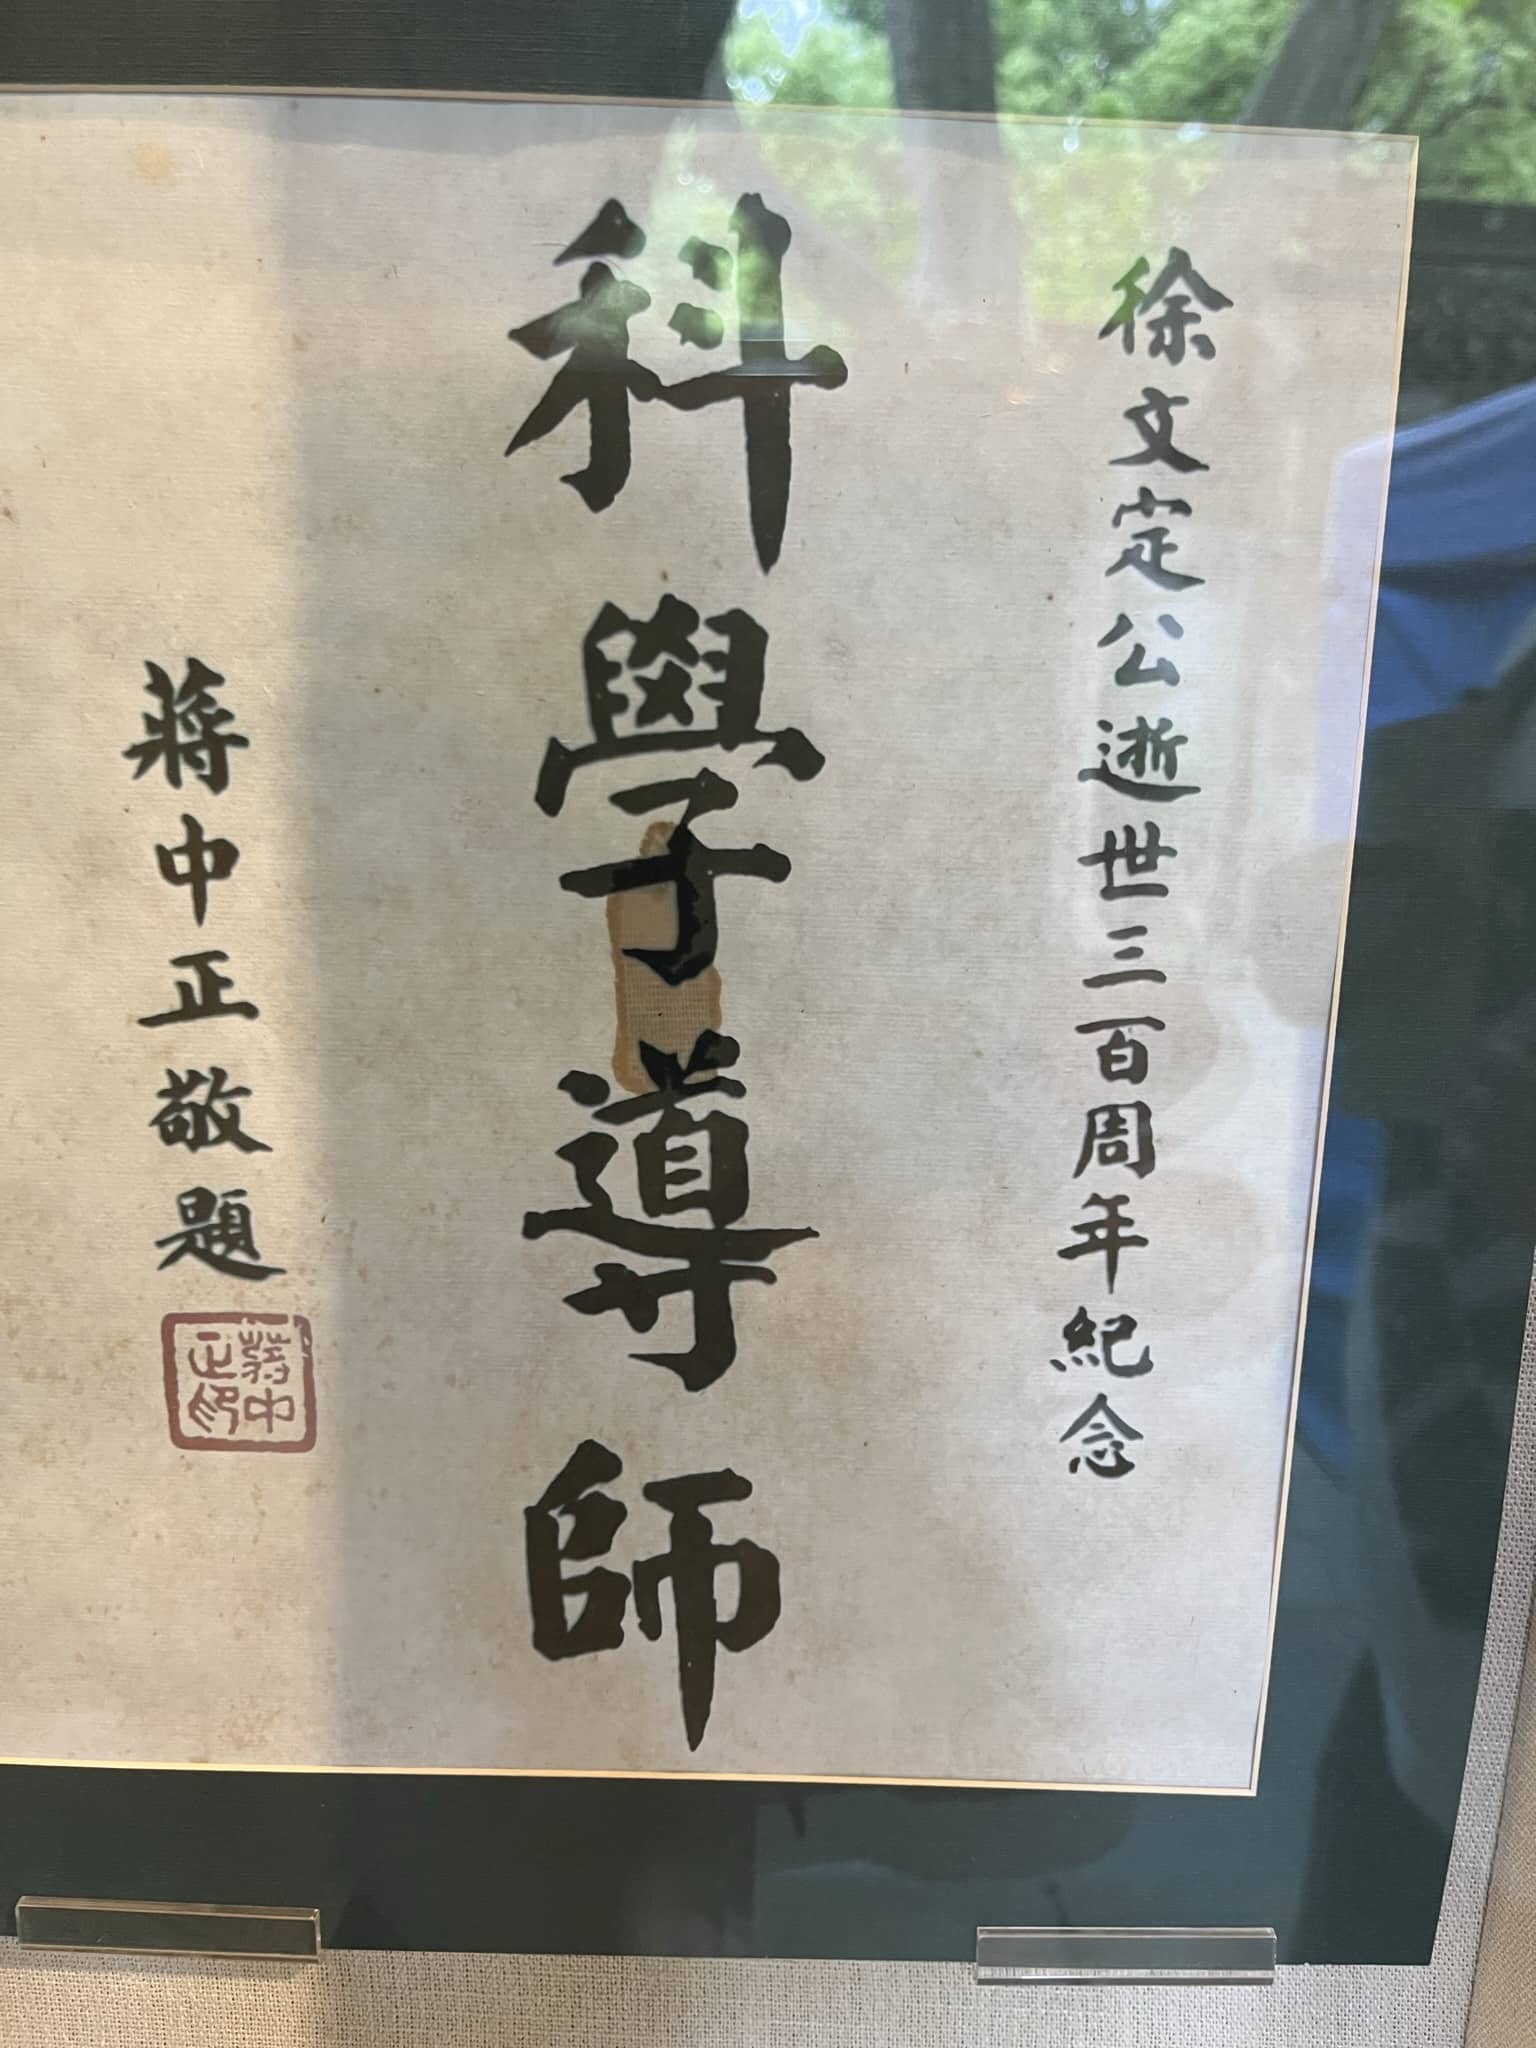 徐文定公逝世三百周年紀念
科學導師
蔣中正敬題
蔣中
正印